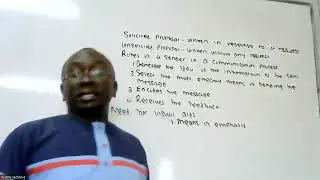 Solicited Proposal - written in response to a request
Unsolicited Proposal - written without any request
Roles of a Sender in a communication process
1 Generate the idea or the information to be sent
2 Select the most effective means of sending the message
3 Encodes the message
4 Receives the feedback
Meet for visual aids
1 means of emphasis